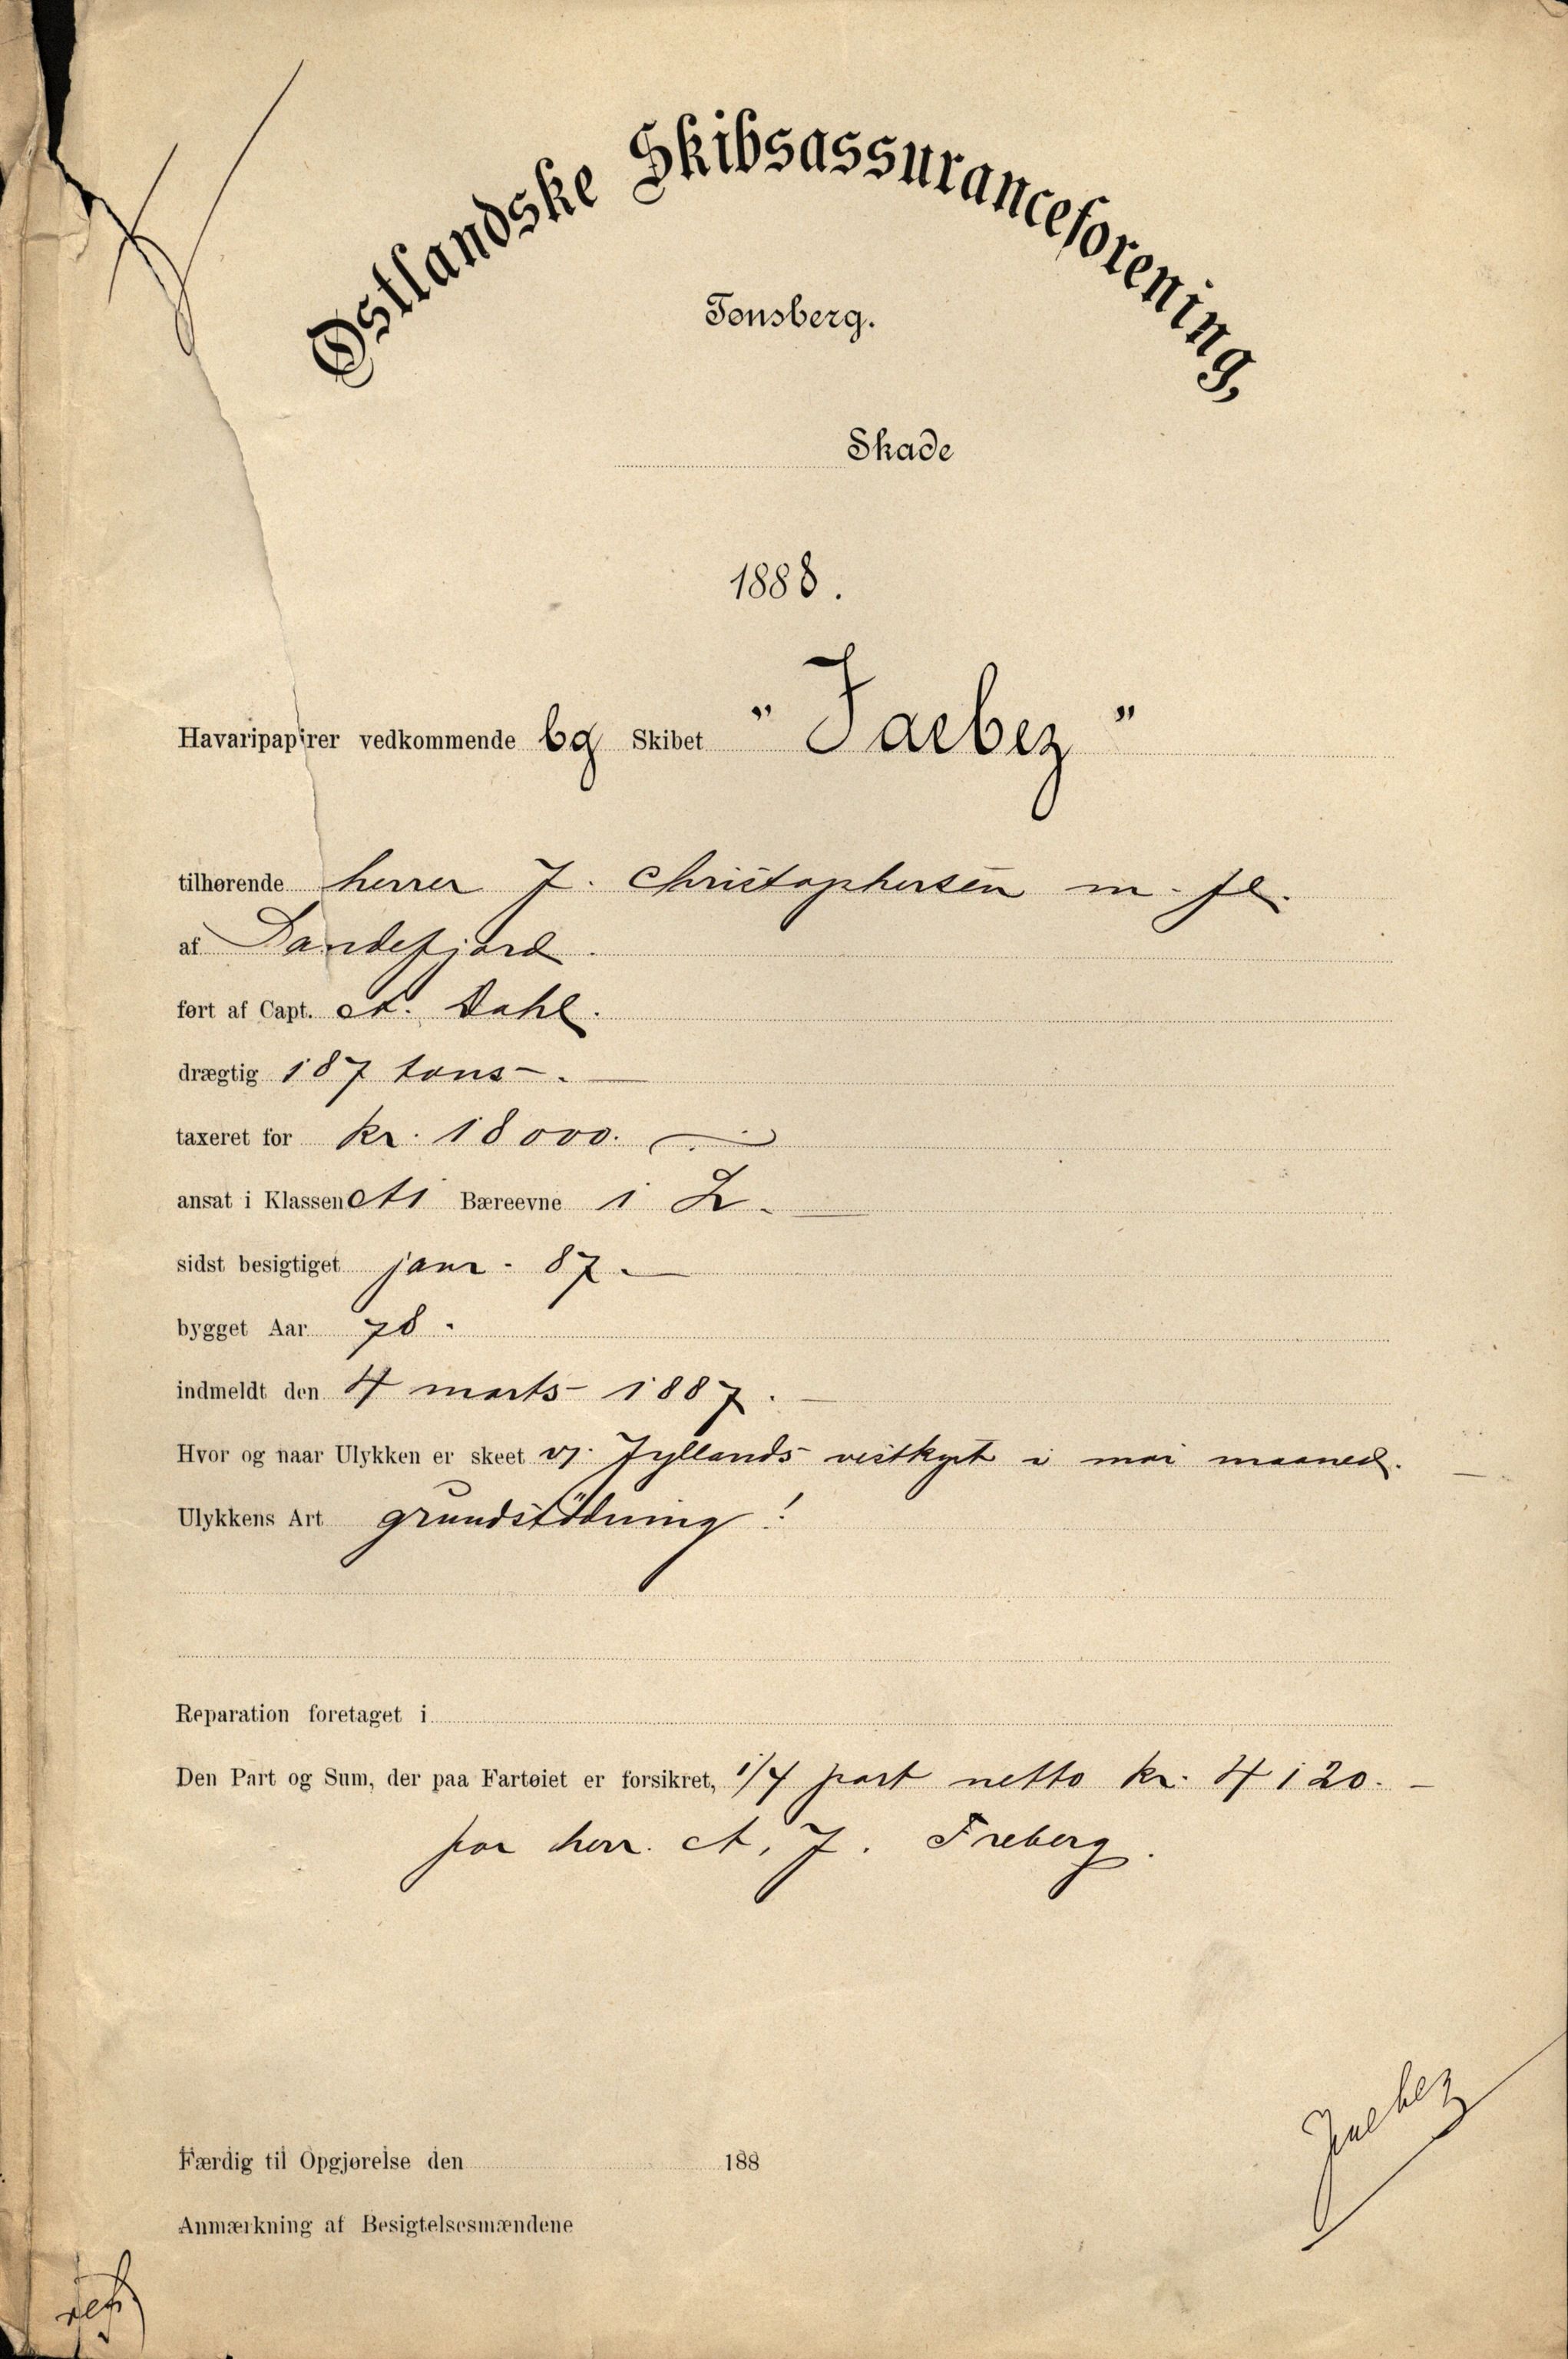 Østlandske Skibsassuranceforening,
Tønsberg.
Skade
1888.
Havaripapirer vedkommende bg Skibet "Jaebez"
tilhørende herrer J. Christophersen m. fl.
af Sandefjord.
ført af Capt. A. Dahl.
drægtig 187 tons.
taxeret for kr. 18000.
ansat i Klassen A1 Bæreevne 1 Z.
sidst besigtiget janr. 87.
bygget Aar 78.
indmeldt den 4 marts 1887.
Hvor og naar Ulykken er skeet v. Jyllands vestkyst i mai maaned.
Ulykkens Art grundstödning!
Reparation foretaget i
Den Part og Sum, der paa Fartøiet er forsikret, 1/4 part netto kr. 4120.-
for herr. A. J. Freberg.
Jaebez
Færdig til Opgjørelse den 188
Anmærkning af Besigtelsesmændene